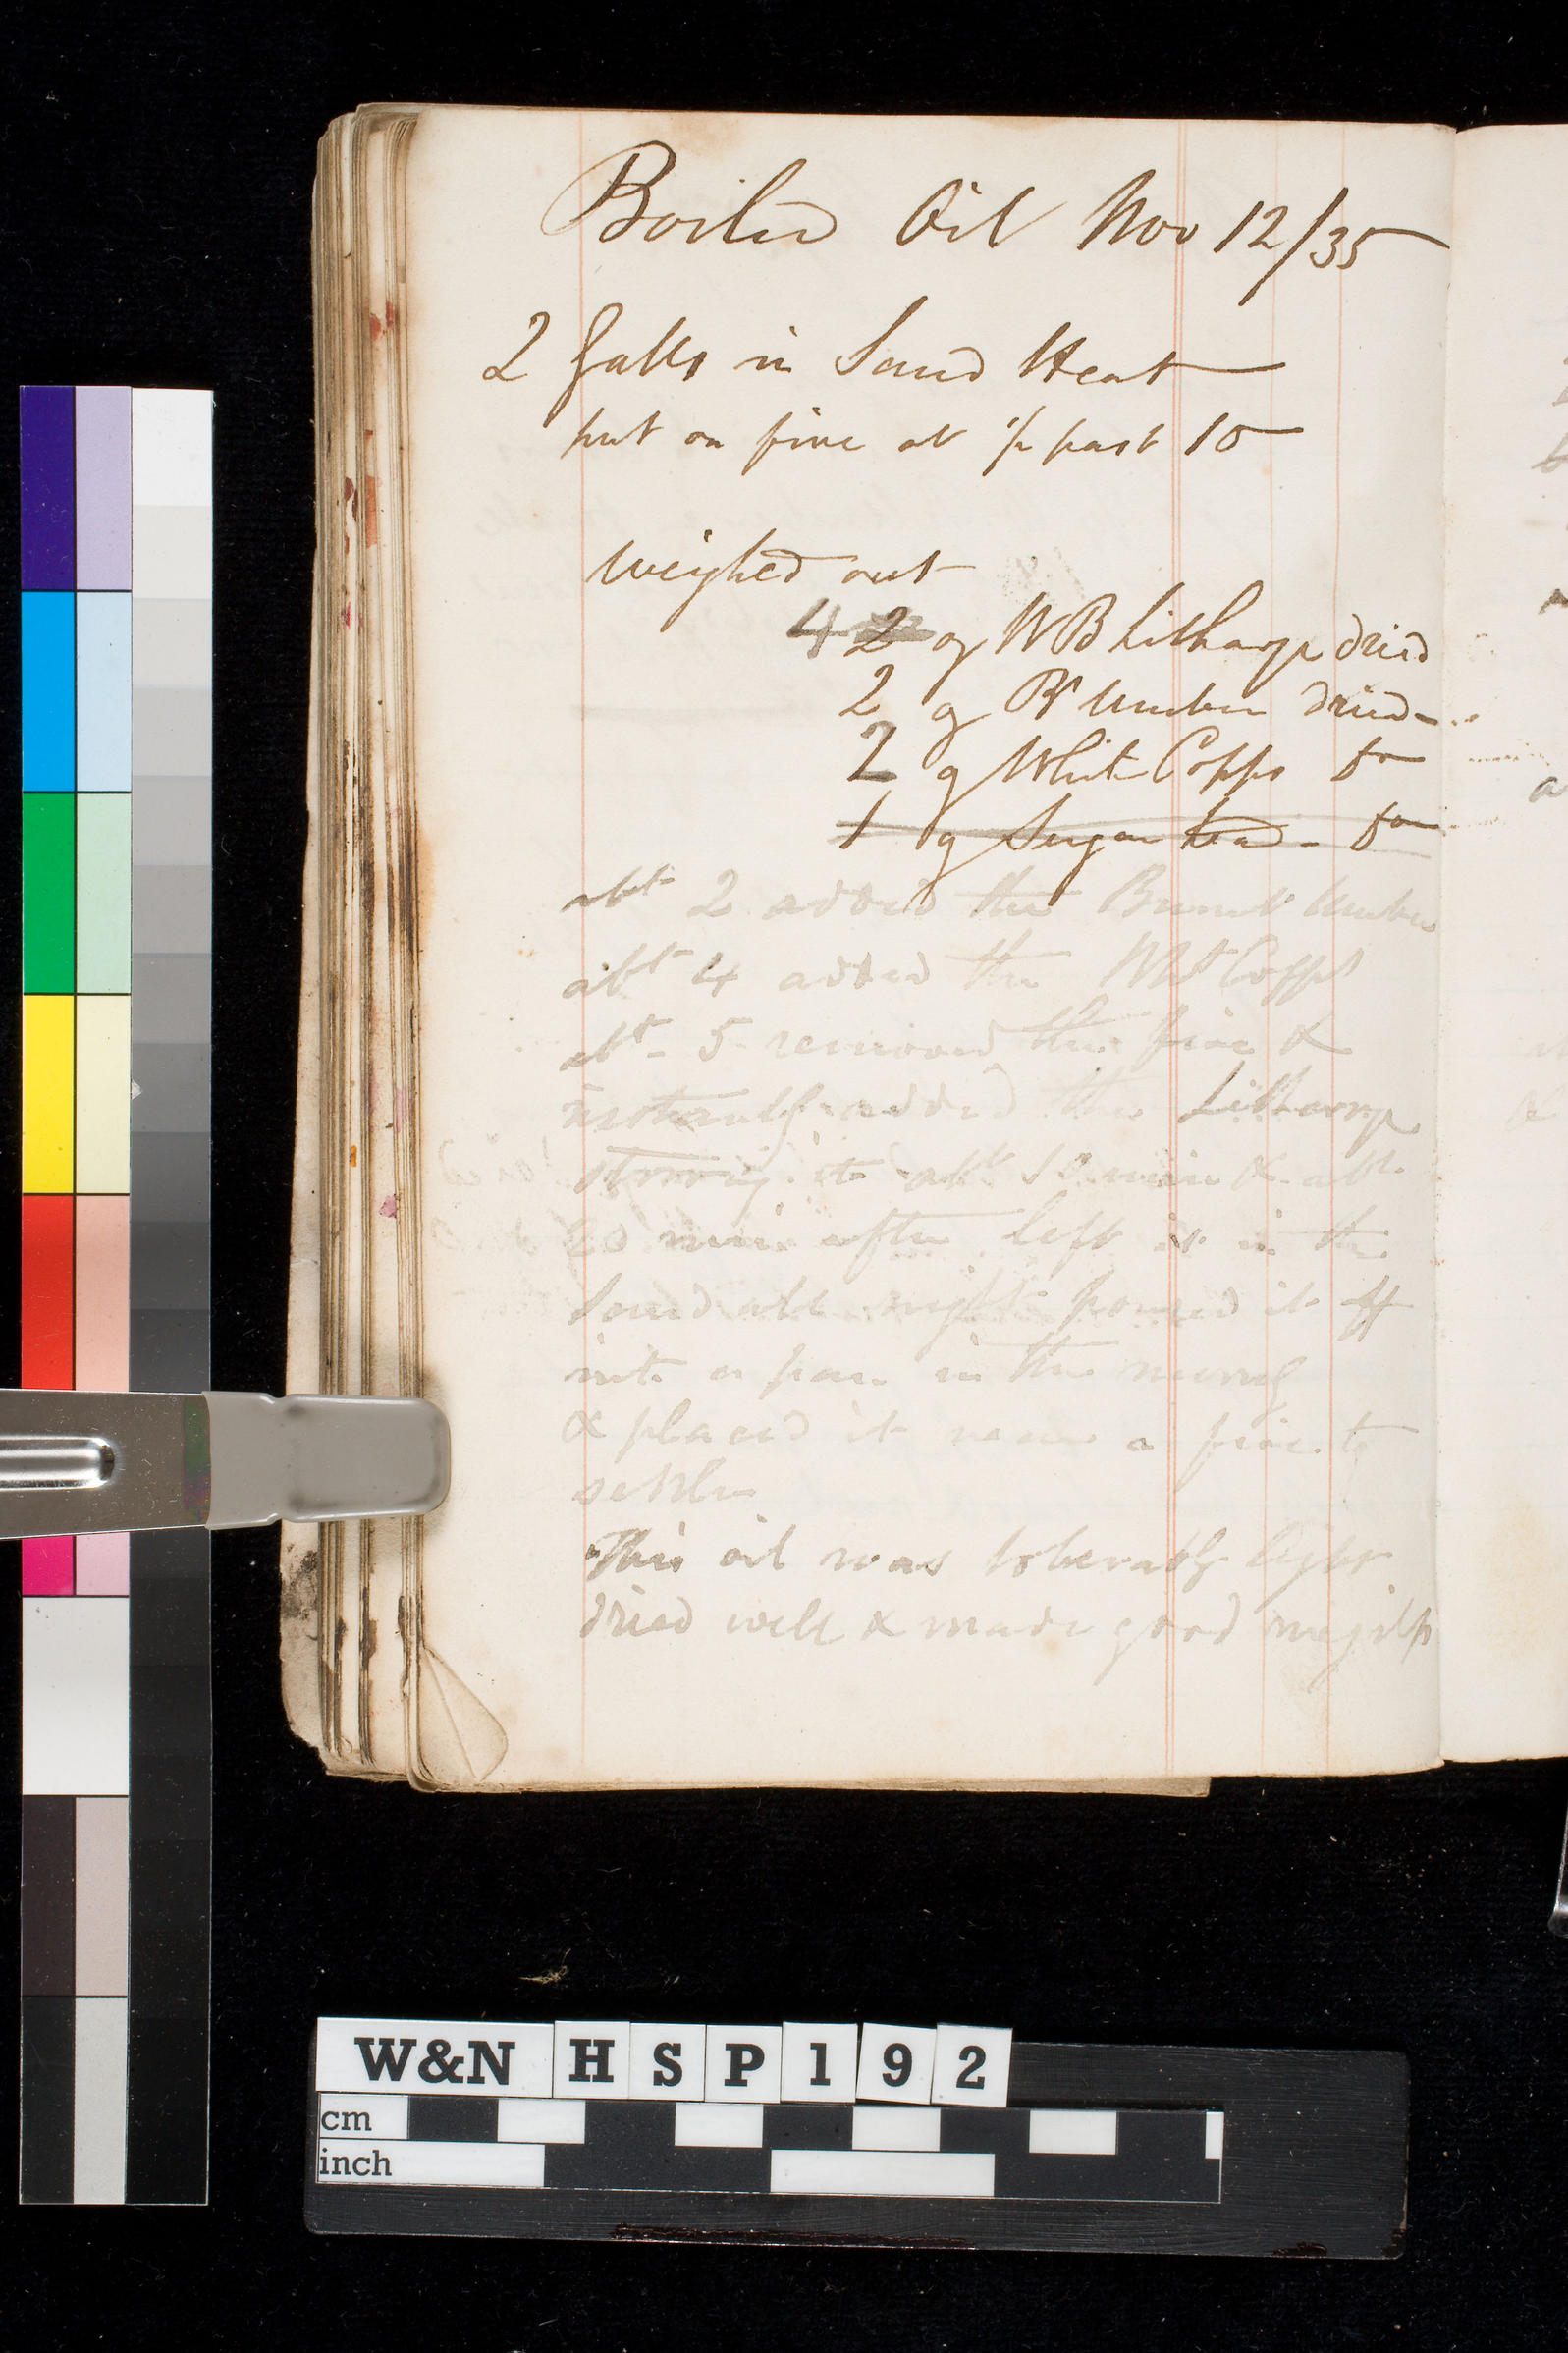 Boiled Oil Nov 12/35
2 Galls in Sand Heat
put on fire at ½ past 10
weighed out
4 2 oz WB Litharge dried
2 oz Bt Umber dried
2 oz White Copps do
1 oz Sugar Lead - do
abt 2 added the Burnt Umber
abt 4 added the Wt Copps
abt 5 removed the fire &
instantly added the Litharge
stirring it abt 10 min & abt
20 min after left it in the
sand all night poured it off
into a pan in the morng
& placed it near a fire to
settle
This oil was tolerably light
dried well & made good megilp
W&N HSP192
cm
inch